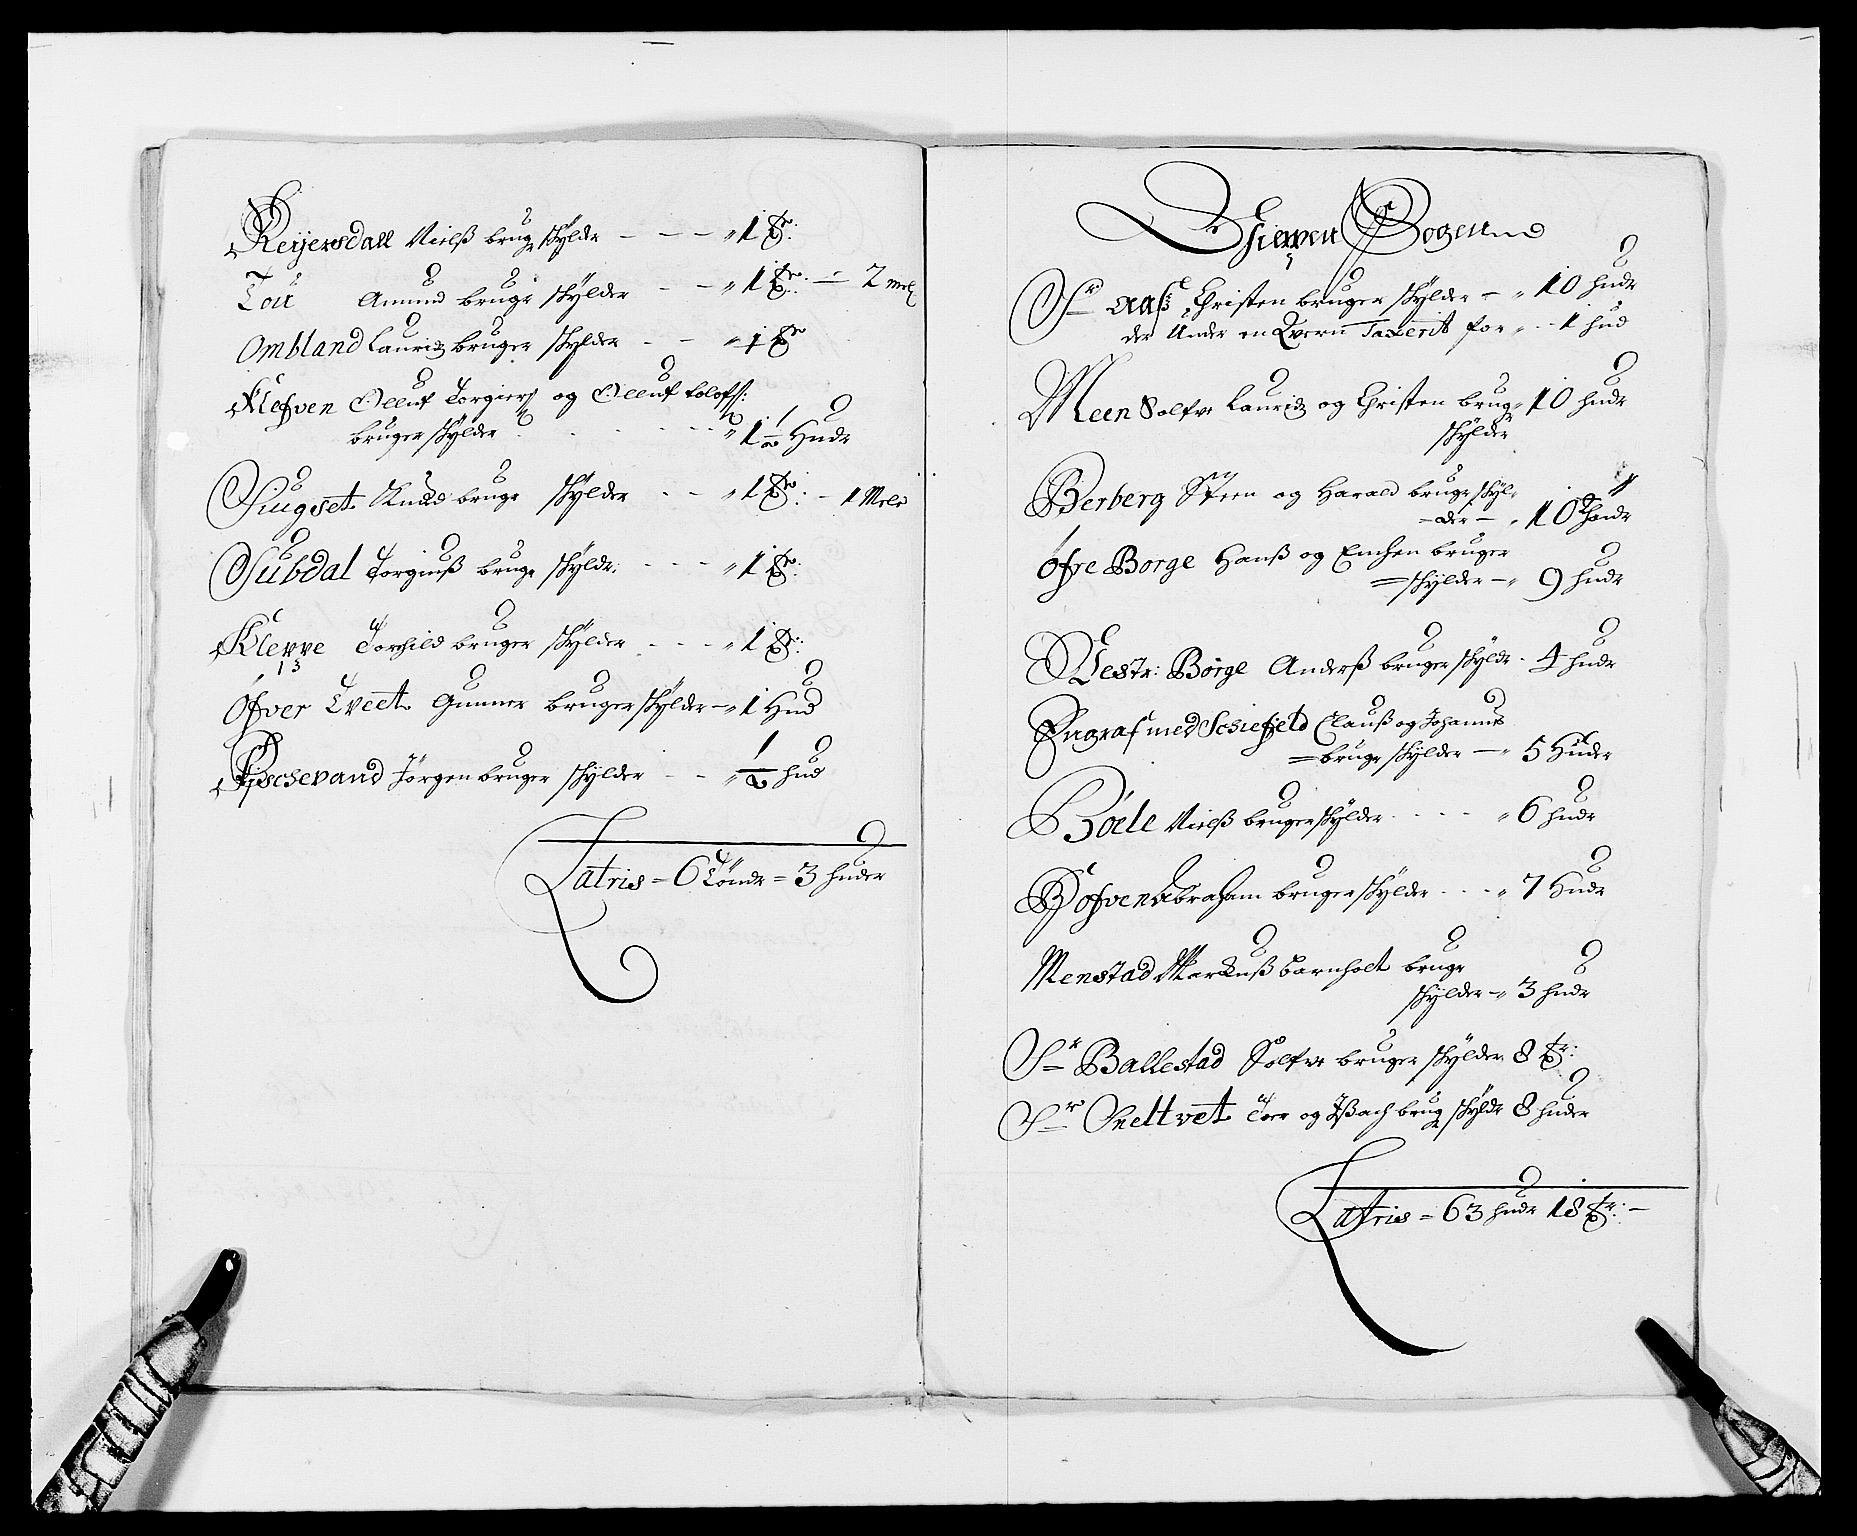 Reiersdall Nielß bruger skylder - - - „ 1 tr:
Tou Amund bruger skylder - - „ 1 tr: - 2 mel
Ombland Lauridz bruger skylder - - „ 1 tr
Klefven Olluf Torgiers og Olluf
bruger skylder . . . . „ 1 1/2 Hudr
Siugset Knud bruger skylder . - „ 1 tr: - 1 Mele
Subdal Torgiuß bruger skyldr: - - - „ 1 tr:
Kleppe Torchild bruger skylder - - - „ 1 tr:
Ofver Tveet Gunner bruger skylder - „ 1 Hud
Fischevand Jörgen bruger skylder - - „ 1/2 hud
Latris = 6 Tönder = 3 huder
Schieppen Sogen
Sr Aaß Christen bruger skylder - „ 10 hudr
der Under en Qvern Taxerit for „ - 1 hud
Meen Solfve Lauridz og Christen bruger „ 10 hudr
skylder
Berberg Steen og Harald bruger skyl-
- der - „ 10 hudr
Ofre Borge Hanß og Enchen bruger
= skylder - „ 9 hudr
Vestr: Borge Anderß bruger skyldr - 4 hudr
Grafmed Schiefjeld Clauß og Johannes
= bruger skylder - „ 5 Huder
Böele Nielß bruger skylder . - - - „ 6 hudr
Hofven Abraham bruger skylder . . - „ 7 Hudr
Menstad Markuß Barnholt bruger
skylder - „ 3 hudr
Sr Ballestad Solfve bruger skylder 8 tr:
Sr Snelltvet Toer og Ißach bruger skyldr 8 huder
Latris = 63 hudr 18 tr: -